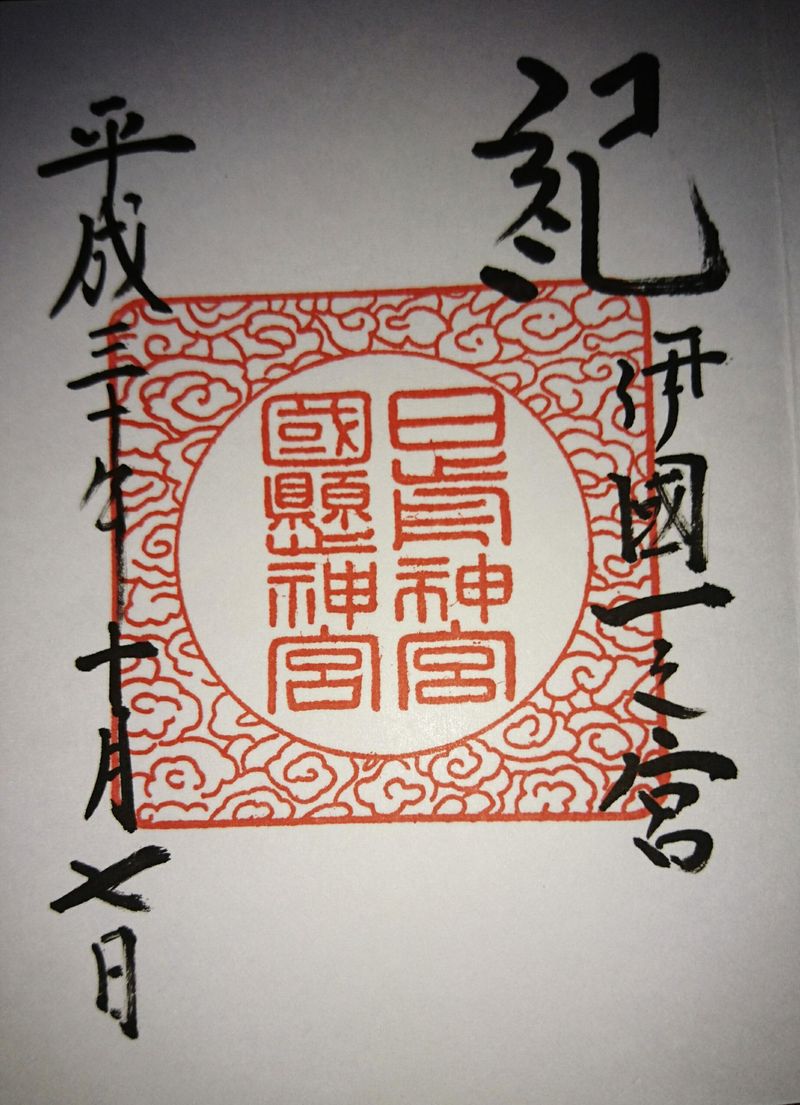 紀伊國一之宮
日前神宮
國懸神宮
平成三十年十月七日